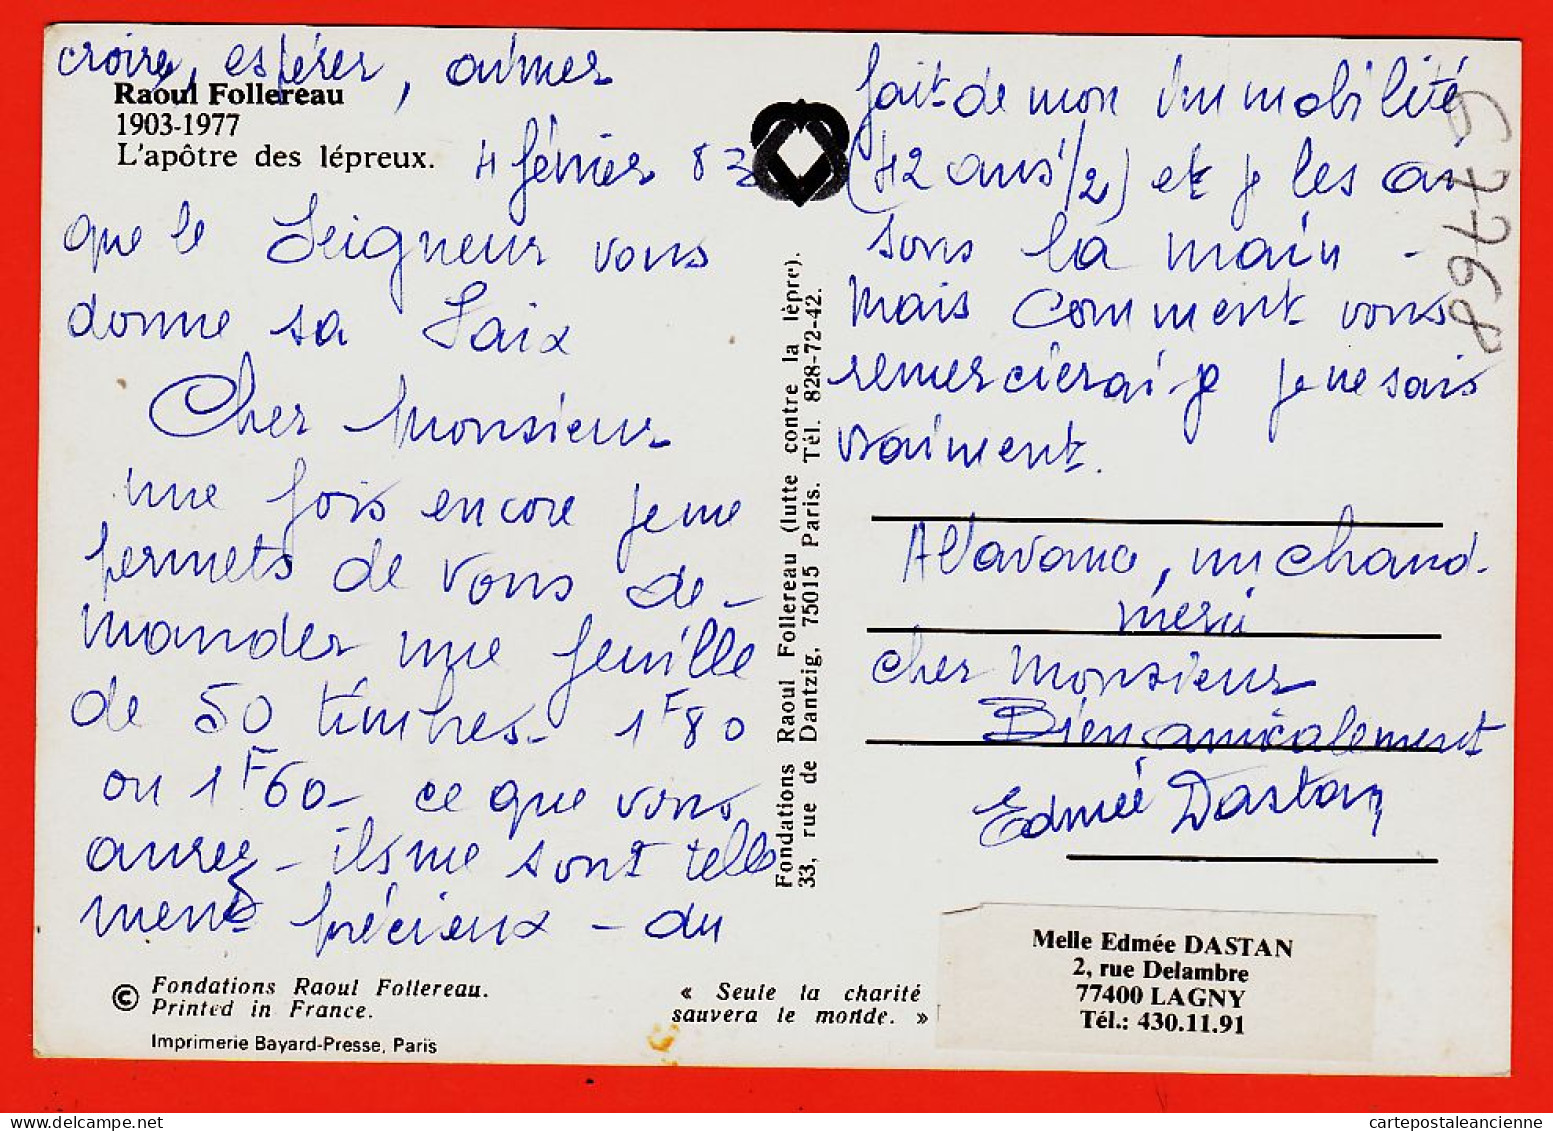 croire, espérer, aimer
Raoul Follereau
1903-1977
L'apôtre des lépreux.
4 février 83
que le Seigneur vous
donne sa Paix
Cher Monsieur
une fois encore je me
permets de vous de-
mander une feuille
de 50 timbres - 1F80
ou 1F60 - ce que vous
aurez - ils me sont telle
ment précieux - du
© Fondations Raoul Follereau.
Printed in France.
Imprimerie Bayard-Presse, Paris
« Seule la charité
sauvera le monde. »
Fondations Raoul Follereau (lutte contre la lèpre).
33, rue de Dantzig, 75015 Paris. Tél. 828-72-42.
fait de mon immobilité
(42 ans 1/2) et je les ai
sous la main -
Mais comment vous
remercierai-je je ne sais
vraiment.
A l'avance, un chaud
merci
cher Monsieur
Bien amicalement
Edmée Dastan
Melle Edmée DASTAN
2, rue Delambre
77400 LAGNY
Tél.: 430.11.91
67768
cartepostaleancienne